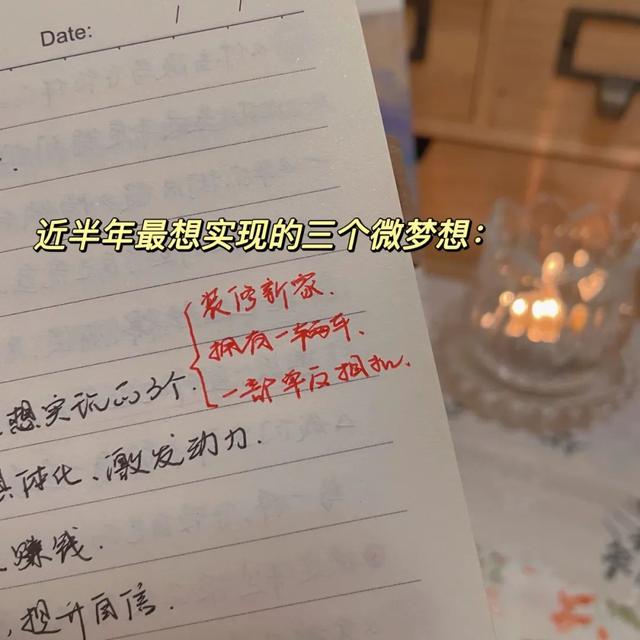 Date: / /
近半年最想实现的三个微梦想：
装修新家.
拥有一辆车.
一部单反相机.
想实现的3个.
具体化、激发动力.
赚钱.
提升自信.